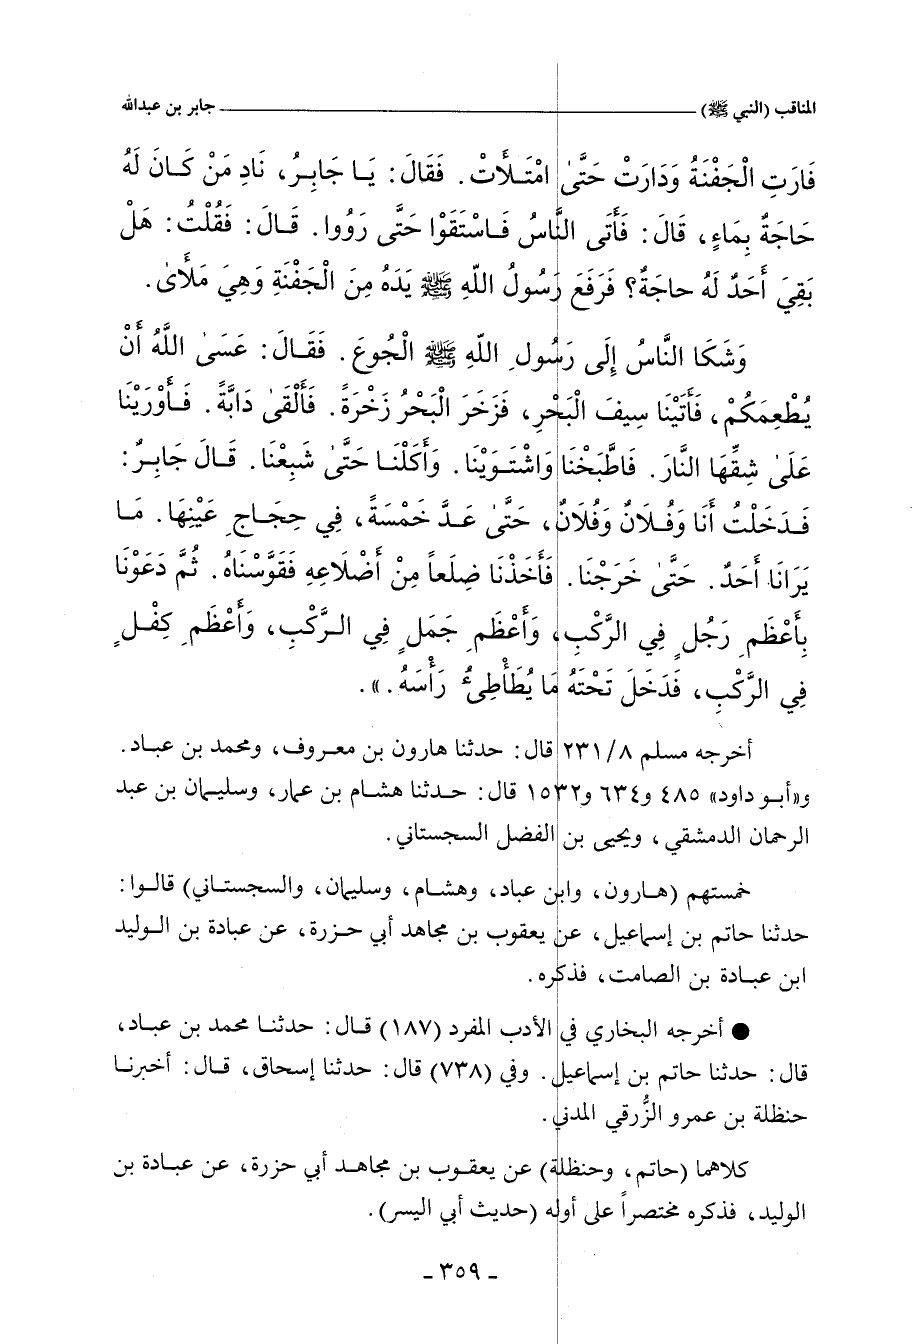 المناقب (النبي ﷺ) ــــــــــــ جابر بن عبدالله
فَارَتِ الْجَفْنَةُ وَدَارَتْ حَتَّىٰ امْتَلَأَتْ. فَقَالَ: يَا جَابِرُ، نَادِ مَنْ كَانَ لَهُ
حَاجَةٌ بِمَاءٍ، قَالَ: فَأَتَى النَّاسُ فَاسْتَقَوْا حَتَّى رَوُوا. قَالَ: فَقُلْتُ: هَلْ
بَقِيَ أَحَدٌ لَهُ حاجَةٌ؟ فَرَفَعَ رَسُولُ اللّهِ ﷺ يَدَهُ مِنَ الْجَفْنَةِ وَهِيَ مَلْأَىٰ.
وَشَكَا النَّاسُ إِلَى رَسُولِ اللّهِ ﷺ الْجُوعَ. فَقَالَ: عَسَىٰ اللَّهُ أَنْ
يُطْعِمَكُمْ، فَأَتَيْنَا سِيفَ الْبَحْرِ، فَزَخَرَ الْبَحْرُ زَخْرَةً. فَأَلْقَىٰ دَابَّةً. فَأَوْرَيْنَا
عَلَىٰ شِقِّهَا النَّارَ. فَاطَّبَخْنَا وَاشْتَوَيْنَا. وَأَكَلْنَا حَتَّىٰ شَبِعْنَا. قَالَ جَابِرٌ:
فَدَخَلْتُ أَنَا وَفُلَانٌ وَفُلَانٌ، حَتَّىٰ عَدَّ خَمْسَةً، فِي حِجَاجِ عَيْنِهَا. مَا
يَرَانَا أَحَدٌ. حَتَّىٰ خَرَجْنَا. فَأَخَذْنَا ضِلَعاً مِنْ أَضْلَاعِهِ فَقَوَّسْنَاهُ. ثُمَّ دَعَوْنَا
بِأَعْظَمِ رَجُلٍ فِي الرَّكْبِ، وَأَعْظَمِ جَمَلٍ فِي الرَّكْبِ، وَأَعْظَمِ كِفْلٍ
فِي الرَّكْبِ، فَدَخَلَ تَحْتَهُ مَا يُطَأْطِئُ رَأْسَهُ.».
أخرجه مسلم ٢٣١/٨ قال: حدثنا هارون بن معروف، ومحمد بن عباد.
و«أبو داود» ٤٨٥ و٦٣٤ و١٥٣٢ قال: حدثنا هشام بن عمار، وسليمان بن عبد
الرحمان الدمشقي، ويحيى بن الفضل السجستاني.
خمستهم (هارون، وابن عباد، وهشام، وسليمان، والسجستاني) قالوا:
حدثنا حاتم بن إسماعيل، عن يعقوب بن مجاهد أبي حزرة، عن عبادة بن الوليد
ابن عبادة بن الصامت، فذكره.
● أخرجه البخاري في الأدب المفرد (١٨٧) قال: حدثنا محمد بن عباد،
قال: حدثنا حاتم بن إسماعيل. وفي (٧٣٨) قال: حدثنا إسحاق، قال: أخبرنا
حنظلة بن عمرو الزُّرقي المدني.
كلاهما (حاتم، وحنظلة) عن يعقوب بن مجاهد أبي حزرة، عن عبادة بن
الوليد، فذكره مختصراً على أوله (حديث أبي اليسر).
- ٣٥٩ -